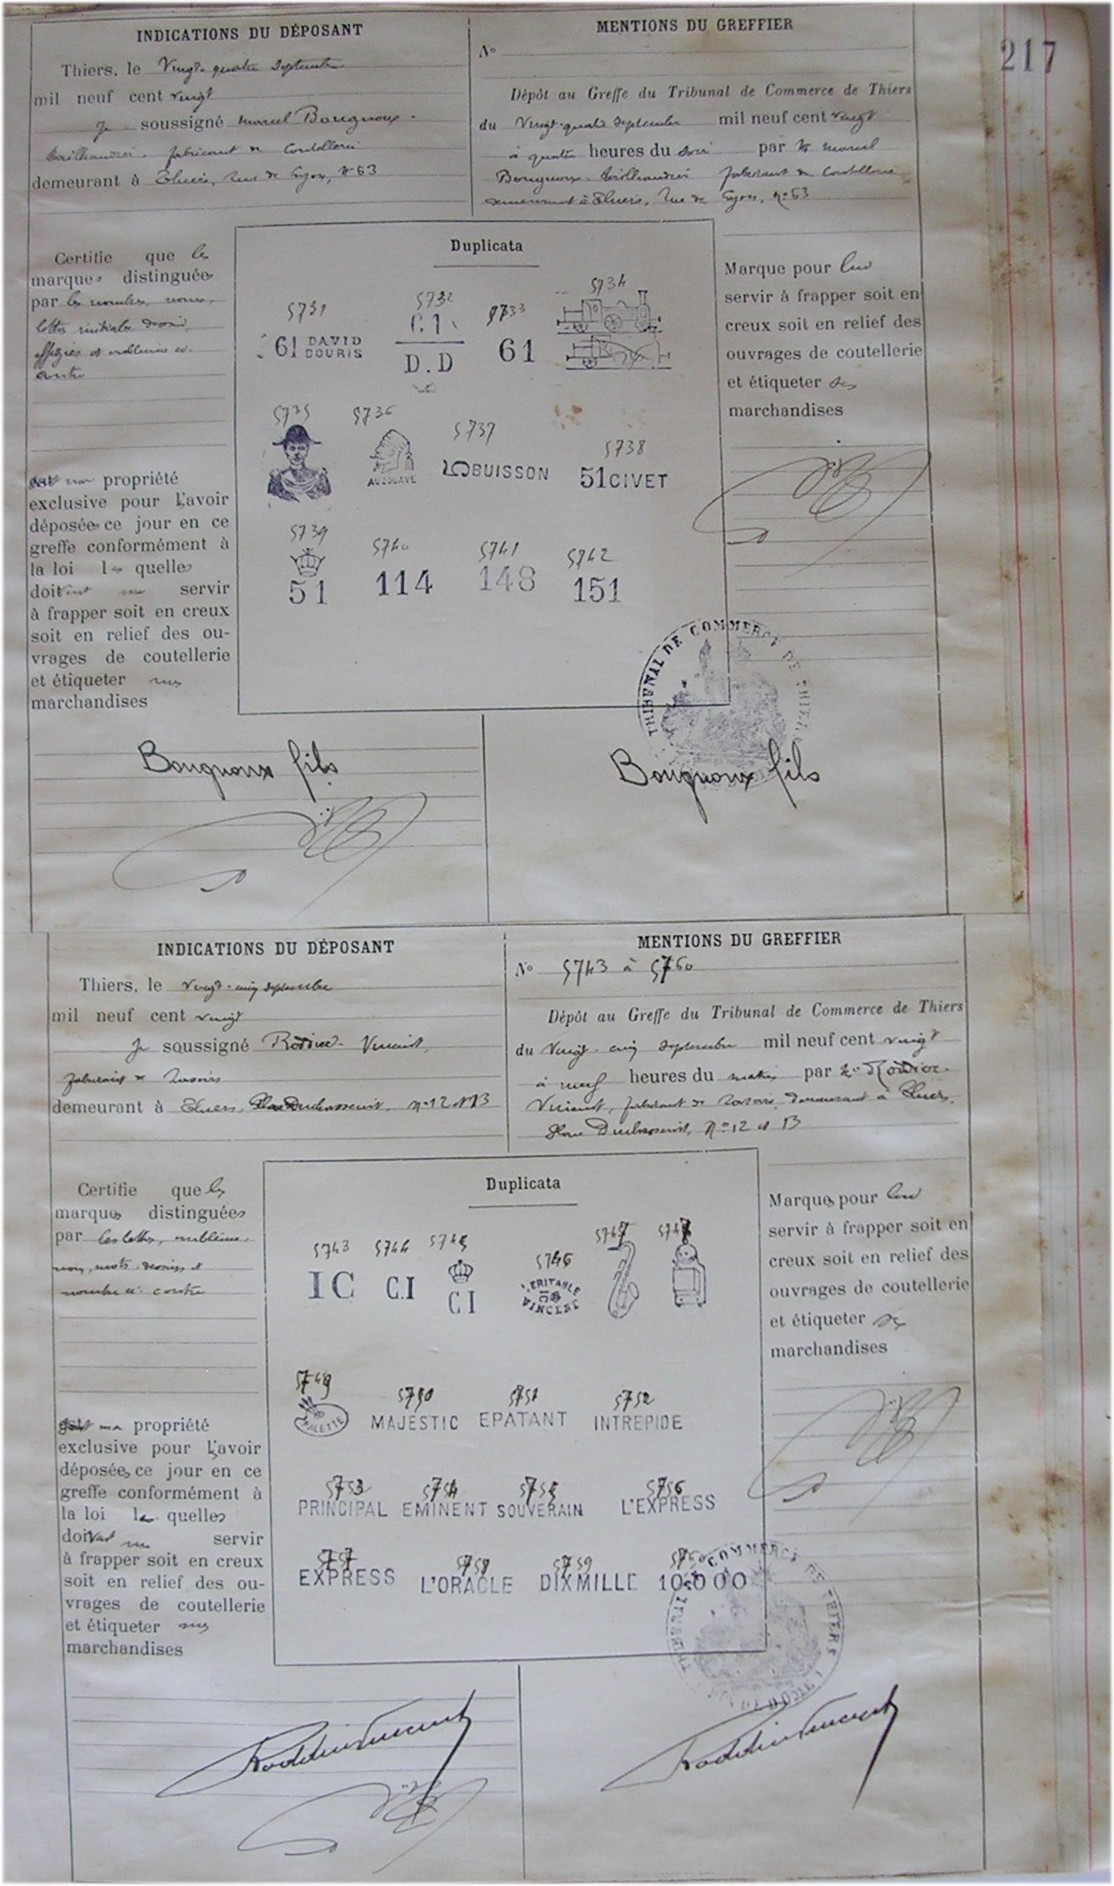 217
INDICATIONS DU DÉPOSANT
Thiers, le Vingt-quatre Septembre
mil neuf cent vingt
Je soussigné Marcel Bougnoux-
fabricant de Coutellerie
demeurant à Thiers, Rue de Lyon, n° 63
MENTIONS DU GREFFIER
N°
Dépôt au Greffe du Tribunal de Commerce de Thiers
du Vingt-quatre Septembre mil neuf cent vingt
à quatre heures du soir par M. Marcel
Bougnoux fabricant de Coutellerie
demeurant à Thiers, Rue de Lyon, n° 63
Certifie que les
marques distinguées
par les nombres, noms,
lettres initiales dessins,
effigies et emblèmes ci-
contre
est ma propriété
exclusive pour l'avoir
déposées ce jour en ce
greffe conformément à
la loi les quelles
doivent me servir
à frapper soit en creux
soit en relief des ou-
vrages de coutellerie
et étiqueter mes
marchandises
Duplicata
5731 5732 5733 5734
61 DAVID DOURIS
D.D
61
5735 5736 5737 5738
AUZOUAVE
BUISSON
51 CIVET
5739 5740 5741 5742
51 114 148 151
Marque pour lui
servir à frapper soit en
creux soit en relief des
ouvrages de coutellerie
et étiqueter ses
marchandises
TRIBUNAL DE COMMERCE DE THIERS
Bougnoux fils
Bougnoux fils
INDICATIONS DU DÉPOSANT
Thiers, le vingt-cinq septembre
mil neuf cent vingt
Je soussigné Rodier-Vincent,
fabricant de rasoirs
demeurant à Thiers, n° 12 et 13
MENTIONS DU GREFFIER
N° 5743 à 5760
Dépôt au Greffe du Tribunal de Commerce de Thiers
du Vingt-cinq Septembre mil neuf cent vingt
à neuf heures du matin par M. Rodier-
Vincent, fabricant de rasoirs, demeurant à Thiers,
N° 12 et 13
Certifie que les
marques distinguées
par les lettres, emblèmes,
noms, mots, dessins et
nombre ci-contre
est ma propriété
exclusive pour l'avoir
déposées ce jour en ce
greffe conformément à
la loi les quelles
doivent me servir
à frapper soit en creux
soit en relief des ou-
vrages de coutellerie
et étiqueter mes
marchandises
Duplicata
5743 5744 5745 5746 5747 5748
IC C.I C.I
VERITABLE IC VINCENT
5749 5750 5751 5752
PALETTE MAJESTIC EPATANT INTREPIDE
5753 5754 5755 5756
PRINCIPAL EMINENT SOUVERAIN L'EXPRESS
5757 5758 5759 5760
EXPRESS L'ORACLE DIXMILLE 10.000
Marques pour lui
servir à frapper soit en
creux soit en relief des
ouvrages de coutellerie
et étiqueter ses
marchandises
TRIBUNAL DE COMMERCE DE THIERS